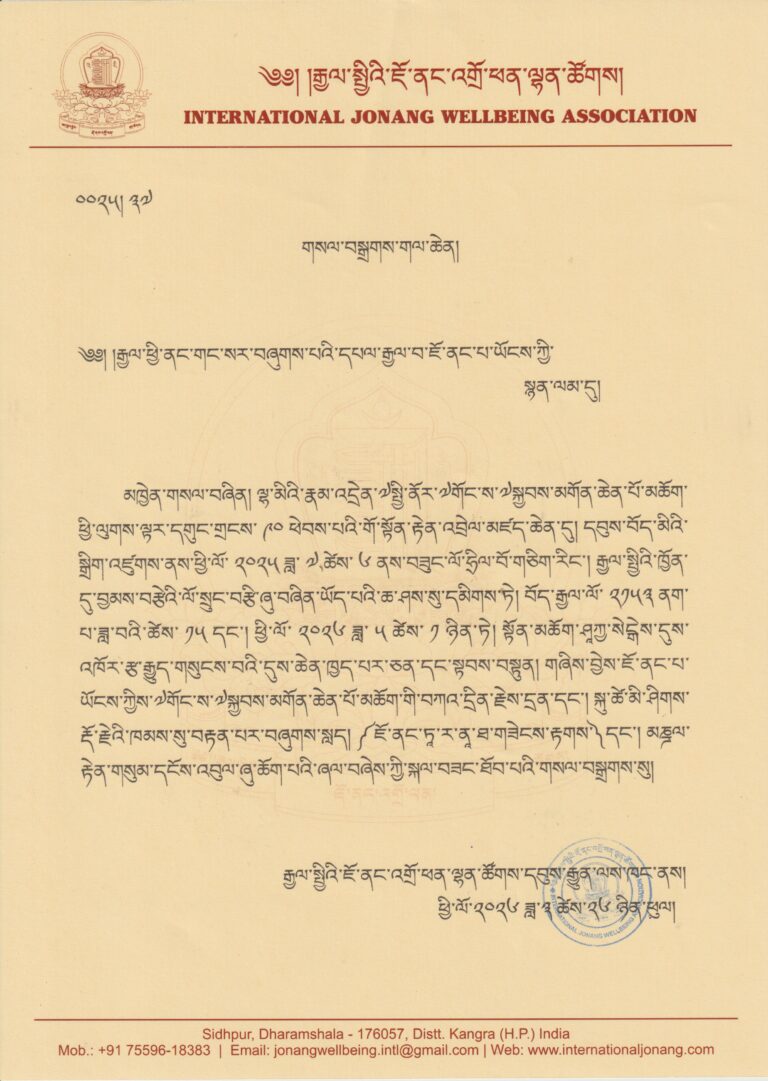 ༄༅། །རྒྱལ་སྤྱིའི་ཇོ་ནང་འགྲོ་ཕན་ལྷན་ཚོགས།
INTERNATIONAL JONANG WELLBEING ASSOCIATION
༠༠༢༥། ༣༧
གསལ་བསྒྲགས་གལ་ཆེན།
༄༅། །རྒྱལ་ཕྱི་ནང་གང་སར་བཞུགས་པའི་དཔལ་རྒྱལ་བ་ཇོ་ནང་པ་ཡོངས་ཀྱི་
སྙན་ལམ་དུ།
མཁྱེན་གསལ་བཞིན། ལྷ་མིའི་རྣམ་འདྲེན་༧སྤྱི་ནོར་༧གོང་ས་༧སྐྱབས་མགོན་ཆེན་པོ་མཆོག་
ཕྱི་ལུགས་ལྟར་དགུང་གྲངས་ ༩༠ ཕེབས་པའི་གོ་སྟོན་རྟེན་འབྲེལ་མཛད་ཆེན་དུ། དབུས་བོད་མིའི་
སྒྲིག་འཛུགས་ནས་ཕྱི་ལོ་ ༢༠༢༥ ཟླ་ ༧ ཚེས་ ༦ ནས་བཟུང་ལོ་ཧྲིལ་བོ་གཅིག་རིང་། རྒྱལ་སྤྱིའི་ཁྱོན་
དུ་བྱམས་བརྩེའི་ལོ་སྲུང་བརྩི་ཞུ་བཞིན་ཡོད་པའི་ཆ་ཤས་སུ་དམིགས་ཏེ། བོད་རྒྱལ་ལོ་ ༢༡༥༣ ནག་
པ་ཟླ་བའི་ཚེས་ ༡༥ དང་། ཕྱི་ལོ་ ༢༠༢༦ ཟླ་ ༥ ཚེས་ ༡ ཉིན་ཏེ། སྟོན་མཆོག་ཤཱཀྱ་སེངྒེས་དུས་
འཁོར་རྩ་རྒྱུད་གསུངས་བའི་དུས་ཆེན་ཁྱད་པར་ཅན་དང་སྟབས་བསྟུན། གཞིས་བྱེས་ཇོ་ནང་པ་
ཡོངས་ཀྱིས་༧གོང་ས་༧སྐྱབས་མགོན་ཆེན་པོ་མཆོག་གི་བཀའ་དྲིན་རྗེས་དྲན་དང་། སྐུ་ཚེ་མི་ཤིགས་
རྡོ་རྗེའི་ཁམས་སུ་བརྟན་པར་བཞུགས་སླད། ༼ཇོ་ནང་ཏཱ་ར་ནཱ་ཐ་གཟེངས་རྟགས་༽དང་། མཎྜལ་
རྟེན་གསུམ་དངོས་འབུལ་ཞུ་ཆོག་པའི་ཞལ་བཞེས་ཀྱི་སྐལ་བཟང་ཐོབ་པའི་གསལ་བསྒྲགས་སུ།
རྒྱལ་སྤྱིའི་ཇོ་ནང་འགྲོ་ཕན་ལྷན་ཚོགས་དབུས་རྒྱུན་ལས་ཁང་ནས།
ཕྱི་ལོ་༢༠༢༦ ཟླ་ ༣ ཚེས་ ༢༦ ཉིན་ཕུལ།
INTERNATIONAL JONANG WELLBEING ASSOCIATION
Sidhpur, Dharamshala - 176057, Distt. Kangra (H.P.) India
Mob.: +91 75596-18383 | Email: jonangwellbeing.intl@gmail.com | Web: www.internationaljonang.com